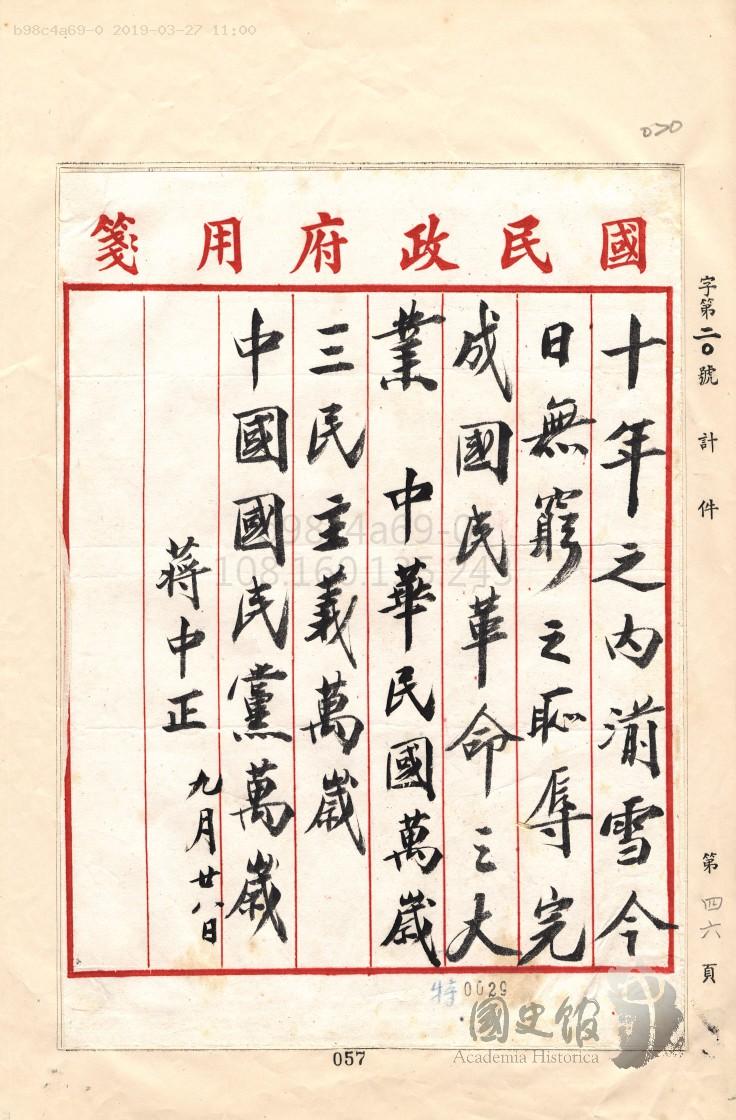 b98c4a69-0 2019-03-27 11:00
國民政府用箋
十年之内湔雪今
日無窮之恥辱完
成國民革命之大
業　中華民國萬歲
三民主義萬歲
中國國民黨萬歲
蔣中正
九月廿八日
字第二〇號 計 件
第四六頁
特0029
國史館
Academia Historica
057